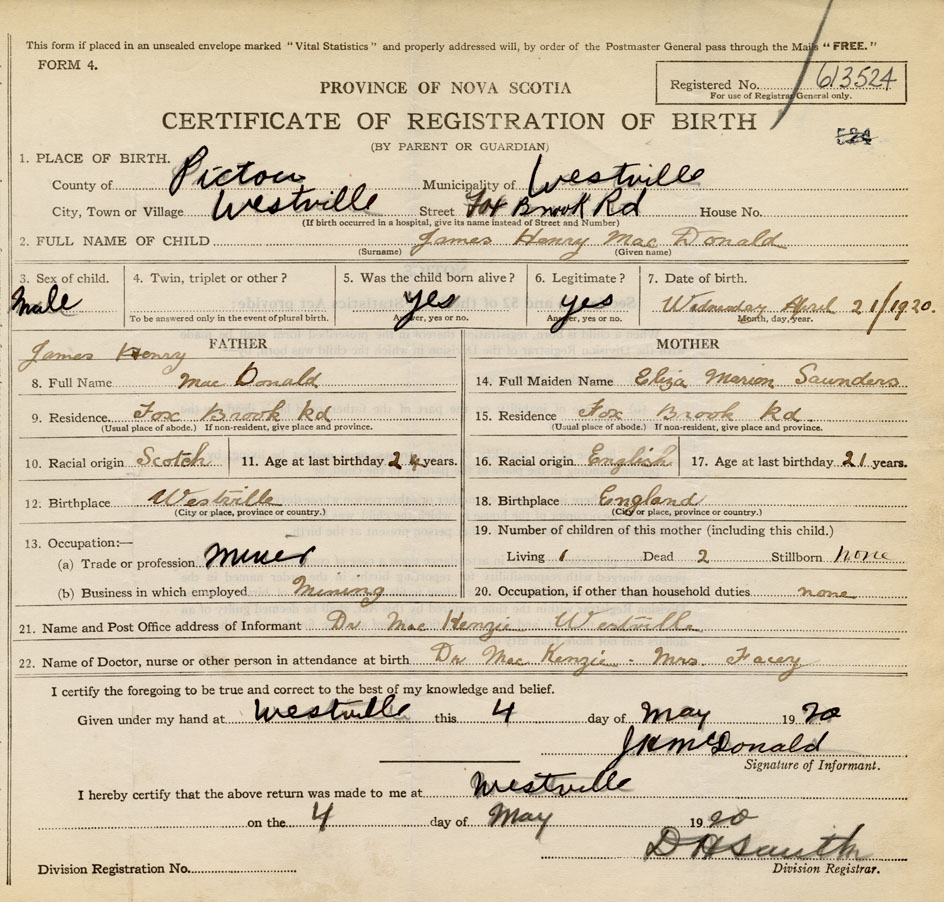 This form if placed in an unsealed envelope marked "Vital Statistics" and properly addressed will, by order of the Postmaster General pass through the Mails "FREE."
FORM 4.
Registered No. 613524
For use of Registrar General only.
PROVINCE OF NOVA SCOTIA
CERTIFICATE OF REGISTRATION OF BIRTH
524
(BY PARENT OR GUARDIAN)
1. PLACE OF BIRTH.
County of Pictou Municipality of Westville
City, Town or Village Westville Street Fox Brook Rd House No.
(If birth occurred in a hospital, give its name instead of Street and Number)
2. FULL NAME OF CHILD James Henry Mac Donald
(Surname) (Given name)
3. Sex of child. Male
4. Twin, triplet or other?
To be answered only in the event of plural birth.
5. Was the child born alive? yes
Answer, yes or no.
6. Legitimate? yes
Answer, yes or no.
7. Date of birth.
Wednesday April 21/1920.
Month, day, year.
FATHER
James Henry
8. Full Name Mac Donald
9. Residence. Fox Brook Rd
(Usual place of abode.) If non-resident, give place and province.
10. Racial origin Scotch 11. Age at last birthday 24 years.
12. Birthplace Westville
(City or place, province or country.)
13. Occupation:—
(a) Trade or profession Miner
(b) Business in which employed Mining
MOTHER
14. Full Maiden Name Eliza Marion Saunders
15. Residence Fox Brook Rd
(Usual place of abode.) If non-resident, give place and province.
16. Racial origin English 17. Age at last birthday 21 years.
18. Birthplace England
(City or place, province or country.)
19. Number of children of this mother (including this child.)
Living 1 Dead 2 Stillborn none
20. Occupation, if other than household duties none
21. Name and Post Office address of Informant Dr Mac Kenzie Westville
22. Name of Doctor, nurse or other person in attendance at birth Dr Mac Kenzie - Mrs. Facey
I certify the foregoing to be true and correct to the best of my knowledge and belief.
Given under my hand at Westville this 4 day of May 1920
J H McDonald
Signature of Informant.
I hereby certify that the above return was made to me at Westville
on the 4 day of May 1920
D H Smith
Division Registration No. Division Registrar.